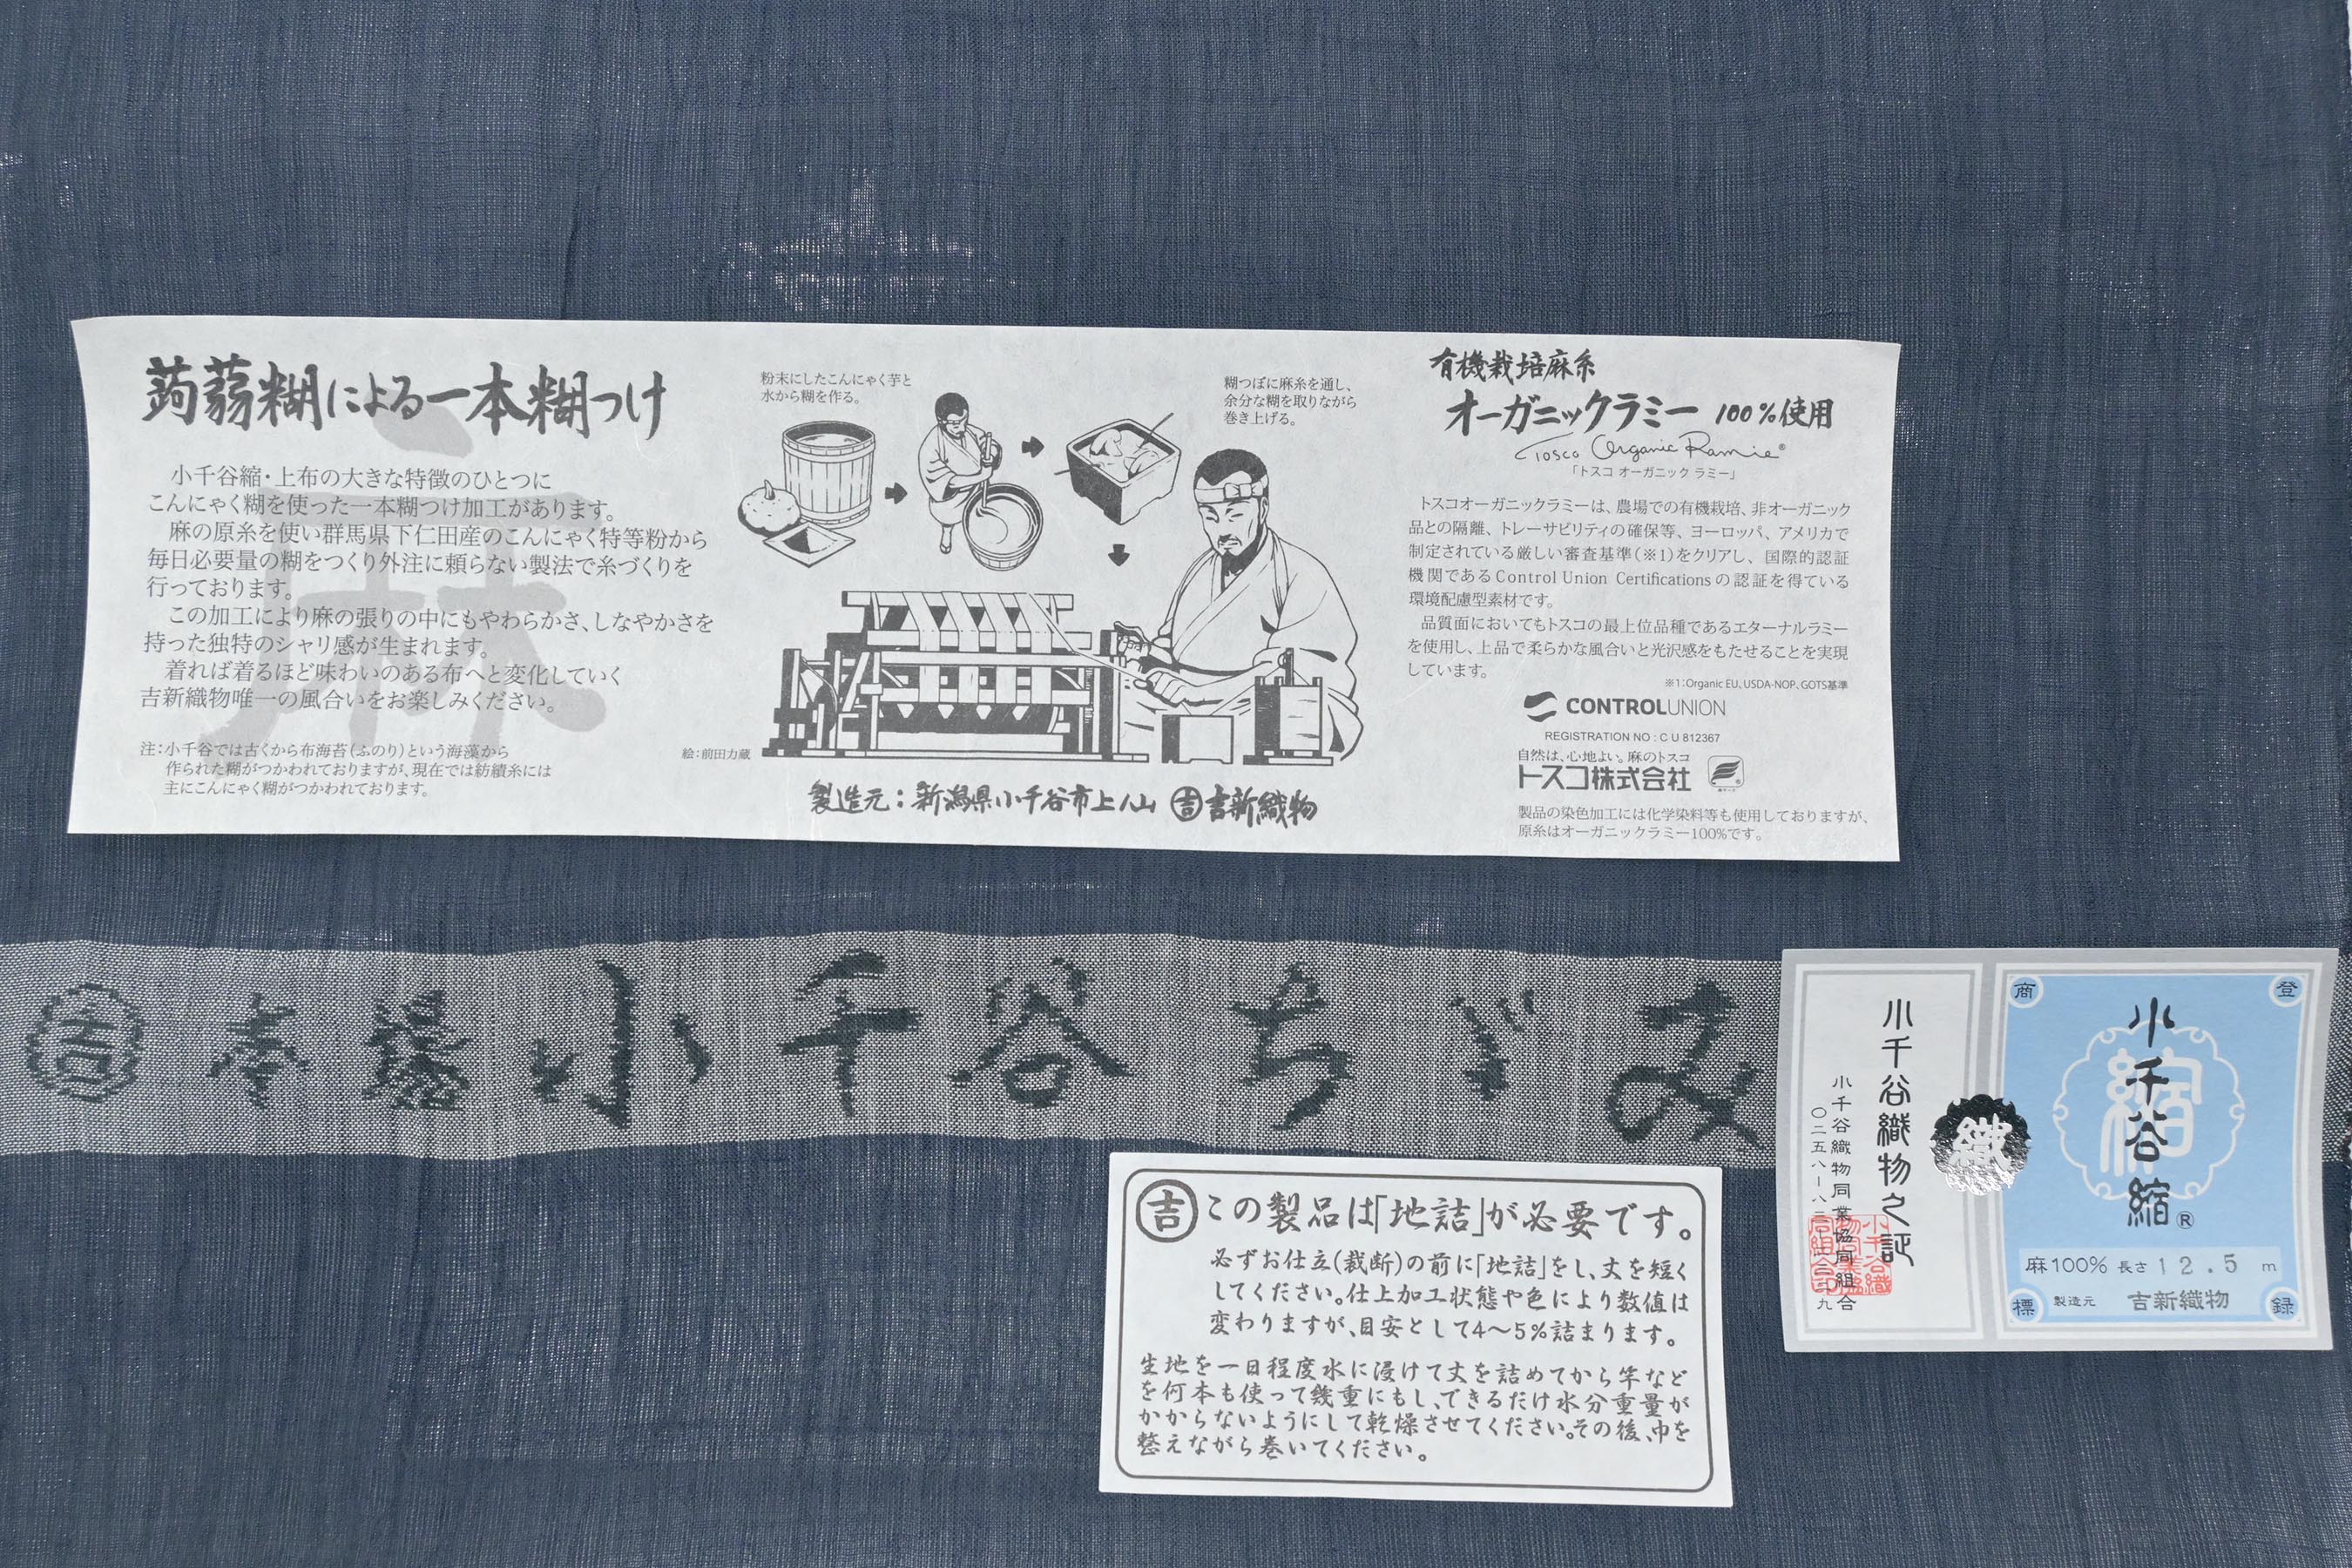 蒟蒻糊による一本糊つけ
小千谷縮・上布の大きな特徴のひとつに
こんにゃく糊を使った一本糊つけ加工があります。
麻の原糸を使い群馬県下仁田産のこんにゃく特等粉から
毎日必要量の糊をつくり外注に頼らない製法で糸づくりを
行っております。
この加工により麻の張りの中にもやわらかさ、しなやかさを
持った独特のシャリ感が生まれます。
着れば着るほど味わいのある布へと変化していく
吉新織物唯一の風合いをお楽しみください。
麻
注：小千谷では古くから布海苔（ふのり）という海藻から
作られた糊がつかわれておりますが、現在では紡績糸には
主にこんにゃく糊がつかわれております。
粉末にしたこんにゃく芋と
水から糊を作る。
糊つぼに麻糸を通し、
余分な糊を取りながら
巻き上げる。
絵：前田力蔵
製造元：新潟県小千谷市上ノ山 吉 吉新織物
有機栽培麻糸
オーガニックラミー 100%使用
Tosco Organic Ramie®
「トスコ オーガニック ラミー」
トスコオーガニックラミーは、農場での有機栽培、非オーガニック
品との隔離、トレーサビリティの確保等、ヨーロッパ、アメリカで
制定されている厳しい審査基準（※1）をクリアし、国際的認証
機関であるControl Union Certificationsの認証を得ている
環境配慮型素材です。
品質面においてもトスコの最上位品種であるエターナルラミー
を使用し、上品で柔らかな風合いと光沢感をもたせることを実現
しています。
※1：Organic EU、USDA-NOP、GOTS基準
CONTROLUNION
REGISTRATION NO : C U 812367
自然は、心地よい。麻のトスコ
トスコ株式会社
製品の染色加工には化学染料等も使用しておりますが、
原糸はオーガニックラミー100%です。
吉 本場小千谷ちゞみ
吉 この製品は「地詰」が必要です。
必ずお仕立（裁断）の前に「地詰」をし、丈を短く
してください。仕上加工状態や色により数値は
変わりますが、目安として4〜5%詰まります。
生地を一日程度水に浸けて丈を詰めてから竿など
を何本も使って幾重にもし、できるだけ水分重量が
かからないようにして乾燥させてください。その後、巾を
整えながら巻いてください。
登録商標
小千谷縮®
縮
麻100% 長さ 12.5 m
製造元 吉新織物
織
小千谷織物之証
小千谷織物同業協同組合